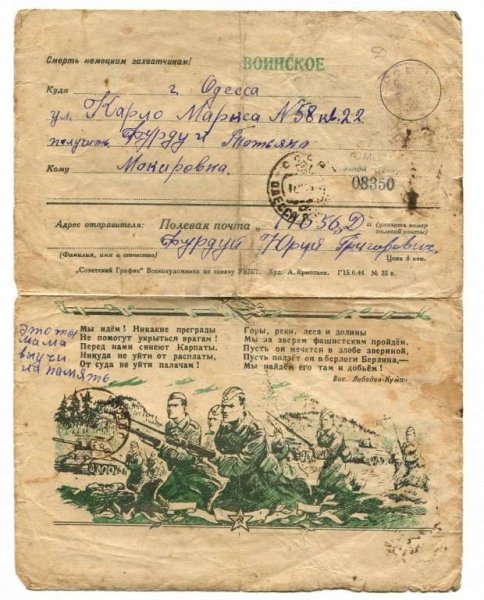 Смерть немецким захватчикам!
ВОИНСКОЕ
Куда г. Одесса
ул. Карло Маркса N 58 кв. 22
получить Фурдуй Татьяна
Кому Макировна.
08350
Адрес отправителя: Полевая почта
(указать номер полевой почты)
Фурдуй Юрий Григорович.
(Фамилия, имя и отчество)
Цена 5 коп.
„Советский График" Всекохудожника по заказу УВПП. Худ. А. Ермолаев. Г15.6.44. № 35 в.
Мы идём! Никакие преграды
Не помогут укрыться врагам!
Перед нами синеют Карпаты.
Никуда не уйти от расплаты,
От суда не уйти палачам!
Горы, реки, леса и долины
Мы за зверем фашистским пройдём.
Пусть он мечется в злобе звериной,
Пусть ползёт он в берлоги Берлина,—
Мы найдём его там и добьём!
Вас. Лебедев-Кумач
это ты
мама
выучи
на память